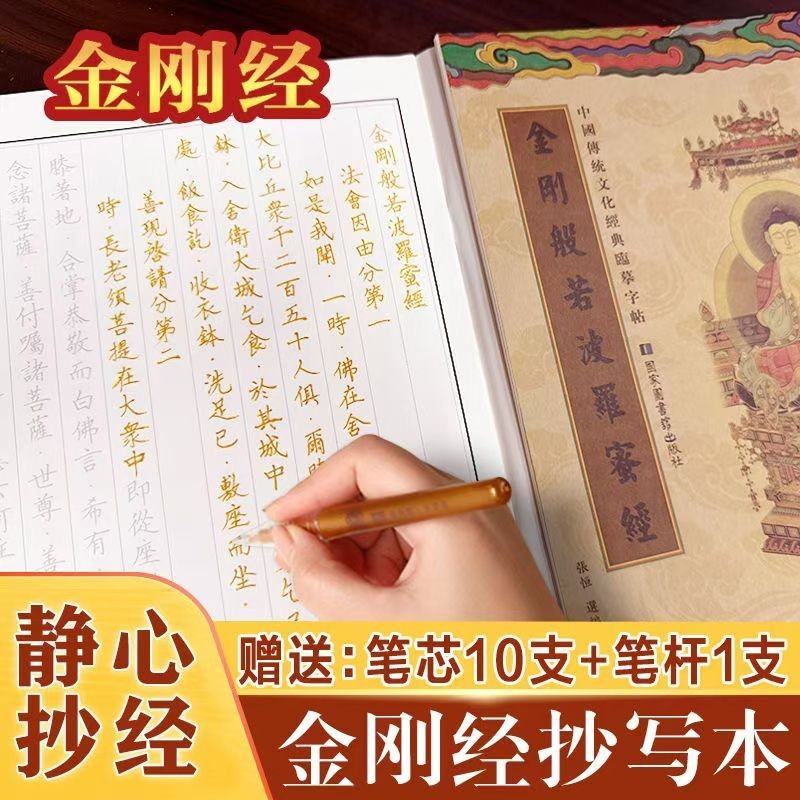 金刚经
金剛般若波羅蜜經
法會因由分第一
如是我聞．一時．佛在舍
大比丘衆千二百五十人俱．爾
鉢．入舍衛大城乞食．於其城中
處．飯食訖．收衣鉢．洗足已．敷座而坐．
善現啓請分第二
時．長老須菩提在大衆中即從座
膝著地．合掌恭敬而白佛言．希有
念諸菩薩．善付囑諸菩薩．世尊．善
中國傳統文化經典臨摹字帖
金剛般若波羅蜜經
國家圖書館出版社
張恒 選
静心
抄经
赠送:笔芯10支+笔杆1支
金刚经抄写本